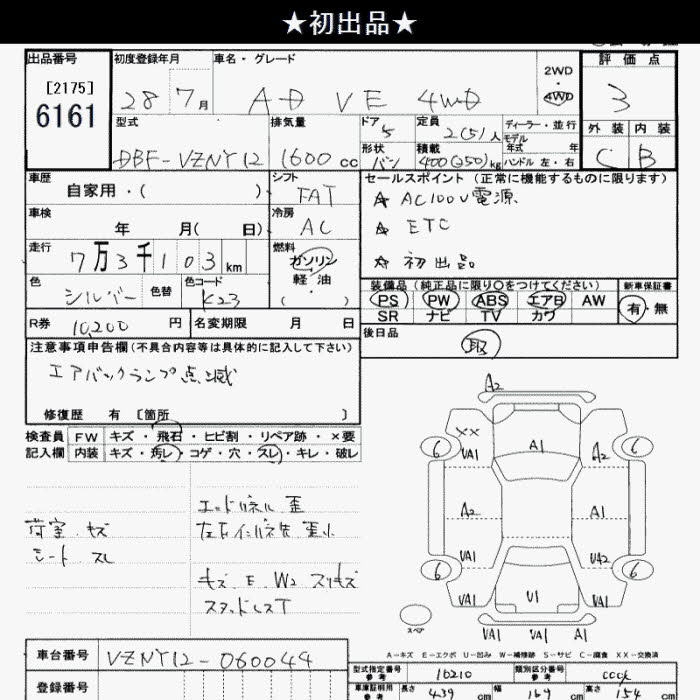 ★初出品★
出品番号 初度登録年月 車名・グレード 評価点
[2175]
6161
28 7月 AD VE 4WD
2WD
・
4WD
3
型式 排気量 ドア 5 定員 2(5)人 ディーラー・並行
モデル年式 年
外装 内装
DBF-VZNY12 1600cc 形状 バン 積載 400(250)kg ハンドル 左・右
C B
車歴 シフト セールスポイント (正常に機能するものに限ります)
自家用・( ) FAT ☆ AC100V電源
車検 冷房 ☆ ETC
年 月( 日) AC
走行 燃料 ☆ 初出品
7万3千103km ガソリン
軽・油
( )
色 色替 色コード
シルバー K23
装備品 (純正品に限り○をつけてください) 新車保証書
PS PW ABS エアB AW 有・無
SR ナビ TV カワ
R券 10,200円 名変期限 月 日
後日品
取
注意事項申告欄(不具合内容等は具体的に記入して下さい)
エアバックランプ点滅
修復歴 有 [箇所 ]
検査員 FW キズ・飛石・ヒビ割・リペア跡・×要
記入欄 内装 キズ・汚レ・コゲ・穴・スレ・キレ・破レ
A2
XX A1
6 VA1 A2 6
A2 A1
VA1 VA2
6 6
VA1 U1 VA1
スペア VA1 VA1 A1
荷室 キズ
シート スレ
エンドパネル 歪
キズ E W2 スリキズ
A-キズ E-エクボ U-凹み W-補修跡 S-サビ C-腐食 XX-交換済
車台番号 VZNY12-060044
登録番号
型式指定番号 参考 10210 類別区分番号 参考
車庫証明用 参考 長さ 439cm 幅 169cm 高さ 154cm